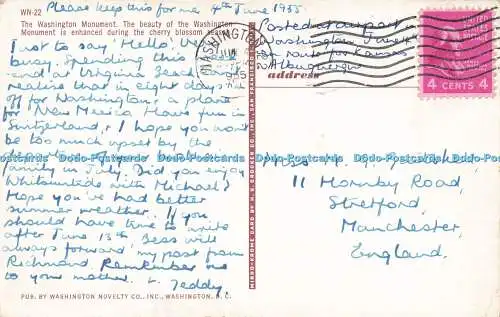 Please keep this for me. 4th June 1955
WN-22
The Washington Monument. The beauty of the Washington
Monument is enhanced during the cherry blossom season.
Just to say 'Hello'
busy. Spending this
end at Virginia Beach
realise that in eight days
off for Washington, a plane
for New Mexico. Have fun in
Switzerland, & I hope you won't
be too much upset by the
family in July. Did you enjoy
Whitsuntide with Michael?
Hope you've had better
summer weather. If you
should have time to write
after June 13th, Bess will
always forward my post from
Richmond. Remember me
to your mother. Teddy.
PUB. BY WASHINGTON NOVELTY CO., INC., WASHINGTON, D. C.
WASHINGTON
1955
Posted at airport
Washington
en route for Kansas
& Albuquerque
address
4 CENTS 4
11 Hornby Road,
Stretford,
Manchester,
England.
Dodo-Postcards.com